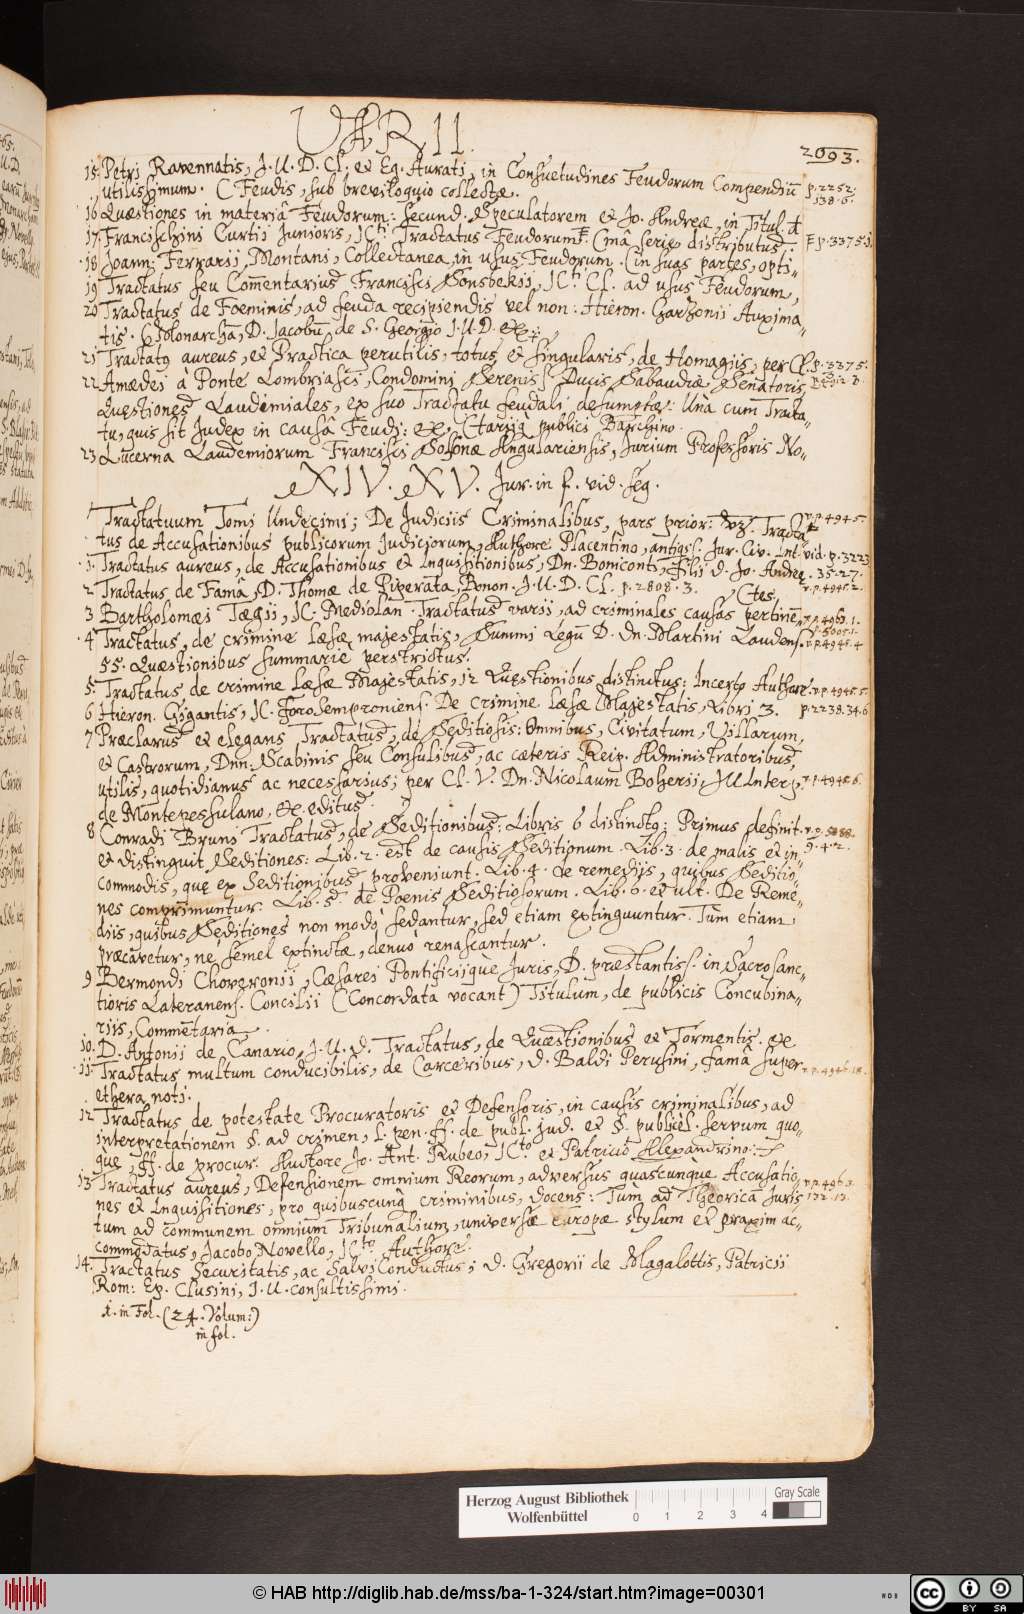 VARII.
2093.
15. Petri Ravennatis, J. U. D. Cl. et Eq. Aurati, in Consuetudines Feudorum Compendiū p. 2252.
utilissimum. C Feudis, sub breviloquio collectæ. 138. 6.
16 Quæstiones in materiâ Feudorum: secund. Speculatorem et Jo. Andreæ, in Titul. d
17. Francischini Curtii Junioris, JCti. Tractatus Feudorum. Comâ serie distributus. p. 3375.
18 Joann: Ferrarii, Montani, Collectanea in usus Feudorum. (in suas partes, opti-
19 Tractatus seu Commentarius Francisci Sonsbekii, JCti. Cl. ad usus Feudorum,
20 Tractatus de Foeminis, ad feuda recipiendis vel non: Hieron. Garzonii Auxima-
tis. Monarchā, D. Jacobū de S. Georgio J. U. D. etc.
21 Tractatq aureus, et Practica perutilis, totus et singularis, de Homagiis, per Cl. p. 3375.
22 Amædei à Ponte Lombriasci, Condomini Sereniss. Ducis Sabaudiæ Senatoris
Quæstiones Laudemiales, ex suo Tractatu feudali desumptæ: Unà cum Tracta-
tu, quis sit Judex in causâ Feudi: etc. publici
23 Lucerna Laudemiorum Francisci Solsonæ Angulariensis, Jurium Professoris No-
XIV. XV. Jur. in f. vid. seq.
Tractatuum Tomi Undecimi; De Judiciis Criminalibus, pars prior: vz. Tracta- v. p. 4945.
tus de Accusationibus publicorum Judiciorum, Authore Placentino, antiqss. Jur. Civ. Int. vid. p. 3223
1. Tractatus aureus, de Accusationibus et Inquisitionibus, Dn. Boniconti, Filii D. Jo. Andreæ. 35. 27.
2 Tractatus de Famâ, D. Thomæ de Piperata, Bonon. J. U. D. Cl. p. 2808. 3. v. p. 4945. 2.
(ctes.
3 Bartholomæi Tægii, JC. Mediolan. Tractatus varii, ad criminales causas pertinē-
4 Tractatus, de crimine læsæ majestatis, Summi Legū D. Dn. Martini Laudens. v. p. 4945. 4
55. Quæstionibus summariè perstrictus.
5. Tractatus de crimine Læsæ Majestatis, 12 Quæstionibus distinctus: Incerto Authore. v. p. 4945. 5.
6 Hieron. Gigantis, JC. Forosempronienss. De crimine læsæ Majestatis, Libri 3. p. 2238. 34. 6
7 Præclarus et elegans Tractatus, de Seditiosis: Omnibus, Civitatum, Villarum,
et Castrorum, Dnn. Scabinis seu Consulibus, ac cæteris Reip. Administratoribus,
utilis, quotidianus ac necessarius; per Cl. V. Dn. Nicolaum Boherii, JU Interp. v. p. 4945. 6.
de Montepessulano, etc. editus.
8 Conradi Bruni Tractatus, de Seditionibus: Libris 6 distinctq: Primus definit.
et distinguit Seditiones: Lib. 2. est de causis Seditionum. Lib. 3. de malis et in- 9. 42.
commodis, quæ ex Seditionibus proveniunt. Lib. 4. de remediis, quibus Seditio-
nes comprimuntur. Lib. 5. de Poenis Seditiosorum. Lib. 6. et ult. De Reme-
diis, quibus Seditiones non modò sedantur, sed etiam extinguuntur. Tum etiam
præcavetur, nè semel extinctæ, denuò renascantur.
9 Bermondi Choveronii, Cæsarei Pontificiique Juris, D. præstantiss. in Sacrosanc-
tioris Lateranens. Concilii (Concordata vocant) Titulum, de publicis Concubina-
riis, Commentaria.
10. D. Antonii de Canario, J. U. D. Tractatus, de Quæstionibus et Tormentis. etc
11. Tractatus multum conducibilis, de Carceribus, D. Baldi Perusini, famâ super
ethera noti.
12 Tractatus de potestate Procuratoris et Defensoris, in causis criminalibus, ad
interpretationem §. ad crimen, l. pen. ff. de publ. jud. et §. publicè. servum quo-
què, ff. de procur. Auctore Jo. Ant. Rubeo, JCto et Patricio Alexandrino:
13 Tractatus aureus, Defensionem omnium Reorum, adversus quascunque Accusatio-
nes et Inquisitiones, pro quibuscunq criminibus, docens: Tùm ad Theoricā Juris 132. 13.
tum ad communem omnium Tribunalium, universæ Europæ stylum et praxim ac-
commodatus, Jacobo Novello, JCto. Authore.
14. Tractatus Securitatis, ac Salvi Conductus; D. Gregorii de Magalottis, Patricii
Rom: Ep. Clusini, J. U. consultissimi.
i. in Fol. (24. Volum:)
in fol.
Herzog August Bibliothek
Wolfenbüttel
0 1 2 3 4
Gray Scale
© HAB http://diglib.hab.de/mss/ba-1-324/start.htm?image=00301
cc BY SA